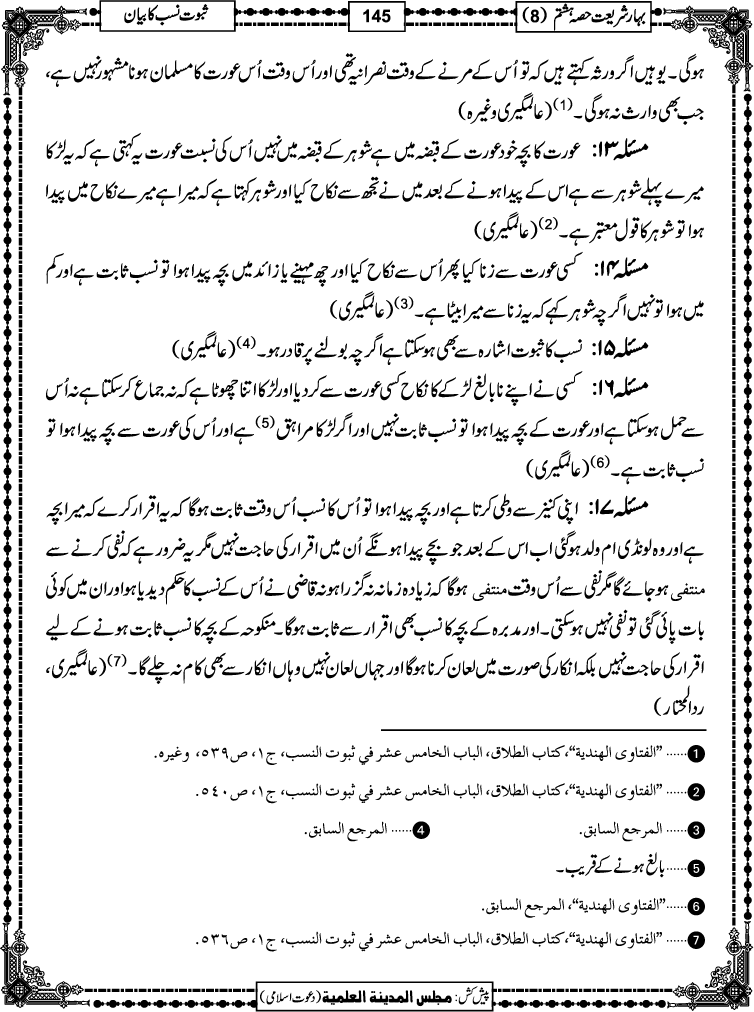 بہار شریعت حصہ ہشتم (8)
145
ثبوت نسب کا بیان
ہوگی۔ یوہیں اگر ورثہ کہتے ہیں کہ تو اُس کے مرنے کے وقت نصرانیہ تھی اور اُس وقت اُس عورت کا مسلمان ہونا مشہور نہیں ہے،
جب بھی وارث نہ ہوگی۔(1) (عالمگیری وغیرہ)
مسئلہ ۱۳: عورت کا بچہ خود عورت کے قبضہ میں ہے شوہر کے قبضہ میں نہیں اُس کی نسبت عورت یہ کہتی ہے کہ یہ لڑکا
میرے پہلے شوہر سے ہے اس کے پیدا ہونے کے بعد میں نے تجھ سے نکاح کیا اور شوہر کہتا ہے کہ میرا ہے میرے نکاح میں پیدا
ہوا تو شوہر کا قول معتبر ہے۔(2) (عالمگیری)
مسئلہ ۱۴: کسی عورت سے زنا کیا پھر اُس سے نکاح کیا اور چھ مہینے یا زائد میں بچہ پیدا ہوا تو نسب ثابت ہے اور کم
میں ہوا تو نہیں اگرچہ شوہر کہے کہ یہ زنا سے میرا بیٹا ہے۔(3) (عالمگیری)
مسئلہ ۱۵: نسب کا ثبوت اشارہ سے بھی ہوسکتا ہے اگرچہ بولنے پر قادر ہو۔(4) (عالمگیری)
مسئلہ ۱۶: کسی نے اپنے نابالغ لڑکے کا نکاح کسی عورت سے کردیا اور لڑکا اتنا چھوٹا ہے کہ نہ جماع کرسکتا ہے نہ اُس
سے حمل ہوسکتا ہے اور عورت کے بچہ پیدا ہوا تو نسب ثابت نہیں اور اگر لڑکا مراہق(5) ہے اور اُس کی عورت سے بچہ پیدا ہوا تو
نسب ثابت ہے۔(6) (عالمگیری)
مسئلہ ۱۷: اپنی کنیز سے وطی کرتا ہے اور بچہ پیدا ہوا تو اُس کا نسب اُس وقت ثابت ہوگا کہ یہ اقرار کرے کہ میرا بچہ
ہے اور وہ لونڈی ام ولد ہوگئی اب اس کے بعد جو بچے پیدا ہونگے اُن میں اقرار کی حاجت نہیں مگر یہ ضرور ہے کہ نفی کرنے سے
منتفی ہوجائے گا مگر نفی سے اُس وقت منتفی ہوگا کہ زیادہ زمانہ نہ گزرا ہو نہ قاضی نے اُس کے نسب کا حکم دیدیا ہو اور ان میں کوئی
بات پائی گئی تو نفی نہیں ہوسکتی۔ اور مدبرہ کے بچہ کا نسب بھی اقرار سے ثابت ہوگا۔ منکوحہ کے بچہ کا نسب ثابت ہونے کے لیے
اقرار کی حاجت نہیں بلکہ انکار کی صورت میں لعان کرنا ہوگا اور جہاں لعان نہیں وہاں انکار سے بھی کام نہ چلے گا۔(7) (عالمگیری،
ردالمحتار)
1 ...... "الفتاوى الهندية"، كتاب الطلاق، الباب الخامس عشر في ثبوت النسب، ج١، ص٥٣٩، وغيره.
2 ...... "الفتاوى الهندية"، كتاب الطلاق، الباب الخامس عشر في ثبوت النسب، ج١، ص٥٤٠.
3 ...... المرجع السابق. 4 ...... المرجع السابق.
5 ...... بالغ ہونے کے قریب۔
6 ...... "الفتاوى الهندية"، المرجع السابق.
7 ...... "الفتاوى الهندية"، كتاب الطلاق، الباب الخامس عشر في ثبوت النسب، ج١، ص٥٣٦.
پیش کش: مجلس المدينة العلمية (دعوت اسلامی)